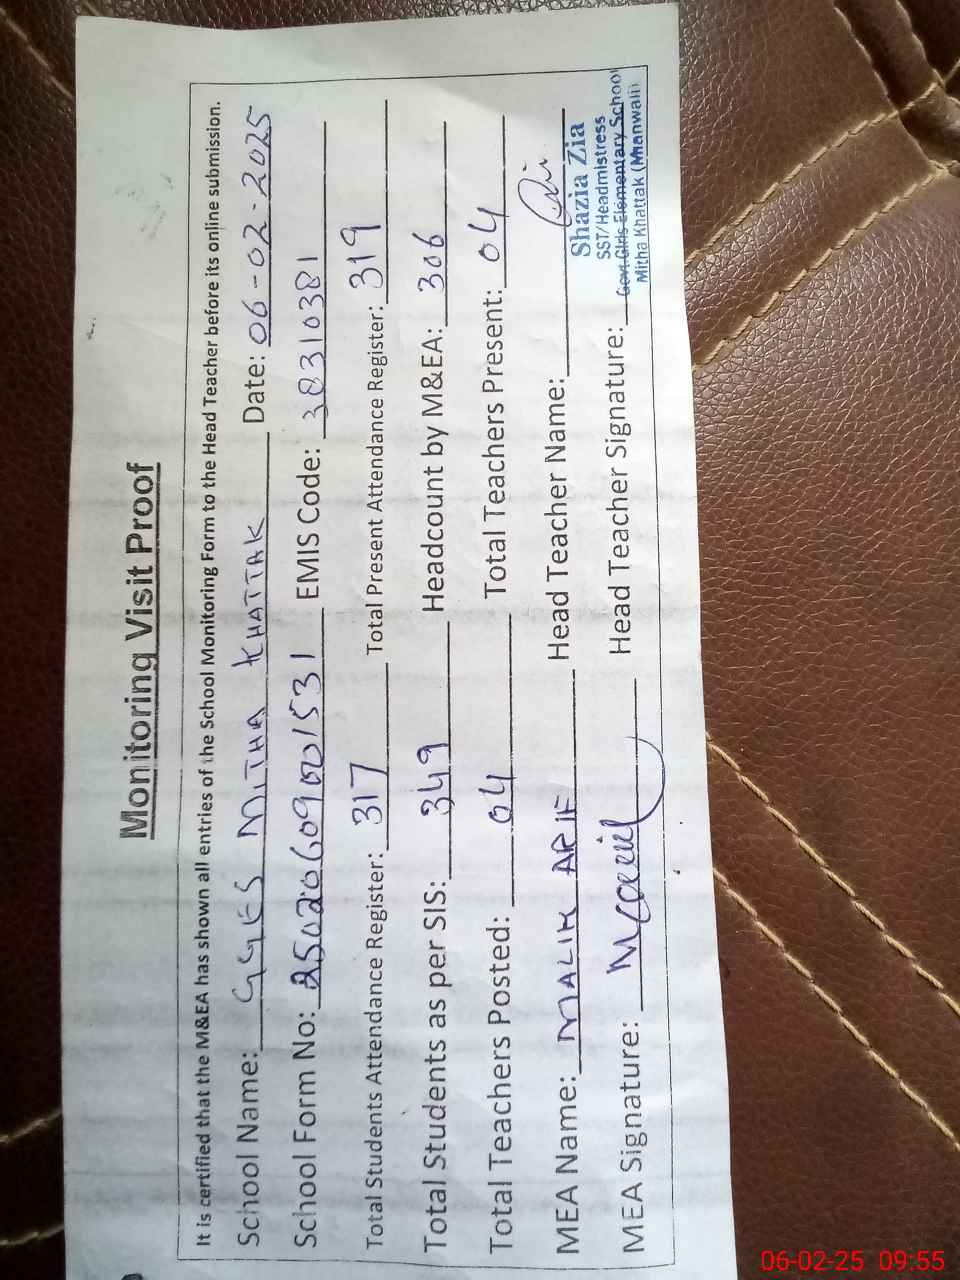 Monitoring Visit Proof
It is certified that the M&EA has shown all entries of the School Monitoring Form to the Head Teacher before its online submission.
School Name: GGES MITHA KHATTAK Date: 06-02-2025
School Form No: EMIS Code: 38310381
Total Students Attendance Register: 317 Total Present Attendance Register: 319
Total Students as per SIS: 349 Headcount by M&EA: 306
Total Teachers Posted: 04 Total Teachers Present: 04
MEA Name: MALIK ARIF Head Teacher Name:
MEA Signature: Head Teacher Signature:
Shazia Zia
SST/Headmistress
Govt. Girls Elementary School
Mitha Khattak (Mianwali)
06-02-25 09:55